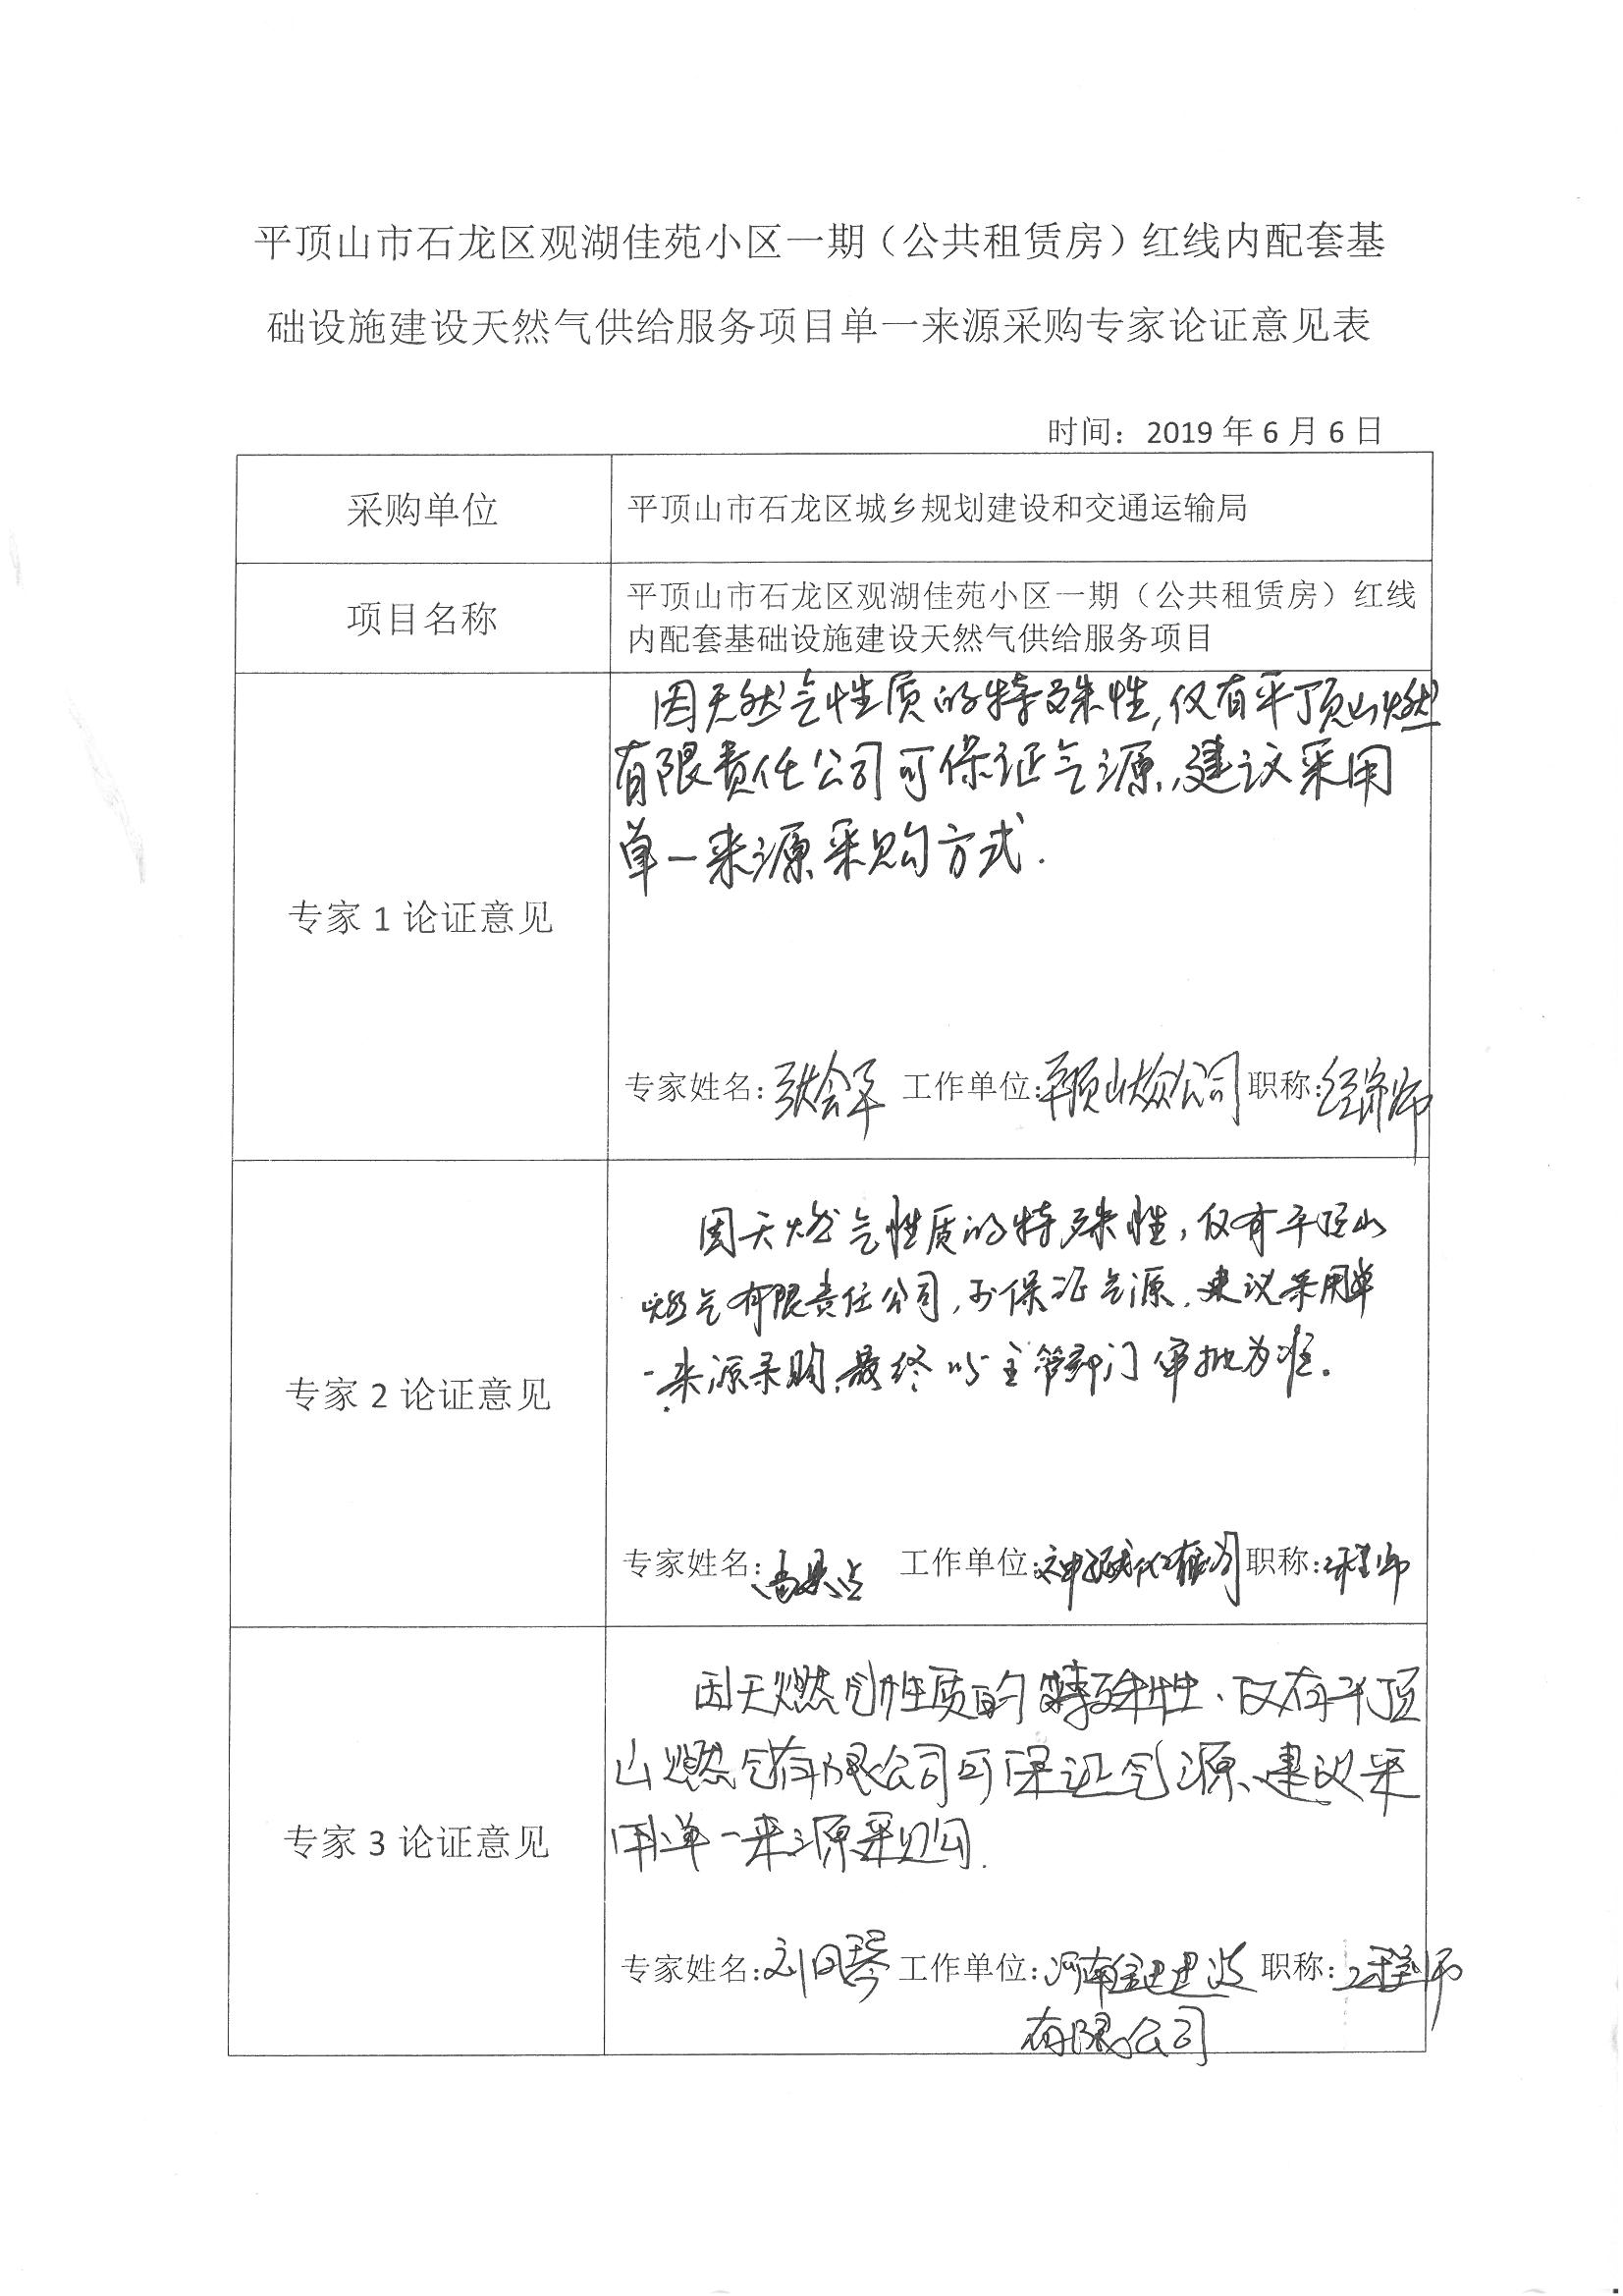 平顶山市石龙区观湖佳苑小区一期（公共租赁房）红线内配套基
础设施建设天然气供给服务项目单一来源采购专家论证意见表
时间：2019 年 6 月 6 日
采购单位
平顶山市石龙区城乡规划建设和交通运输局
项目名称
平顶山市石龙区观湖佳苑小区一期（公共租赁房）红线
内配套基础设施建设天然气供给服务项目
专家 1 论证意见
因天然气性质的特殊性,仅有平顶山燃
有限责任公司可保证气源,建议采用
单一来源采购方式.
专家姓名： 工作单位:平顶山大众公司 职称:经济师
专家 2 论证意见
因天燃气性质的特殊性,仅有平顶山
燃气有限责任公司,可保证气源,建议采用单
一来源采购,最终以主管部门审批为准。
专家姓名： 工作单位: 职称:工程师
专家 3 论证意见
因天燃气性质的特殊性、仅有平顶
山燃气有限公司可保证气源、建议采
用单一来源采购.
专家姓名： 工作单位:河南 建设 职称:工程师
有限公司